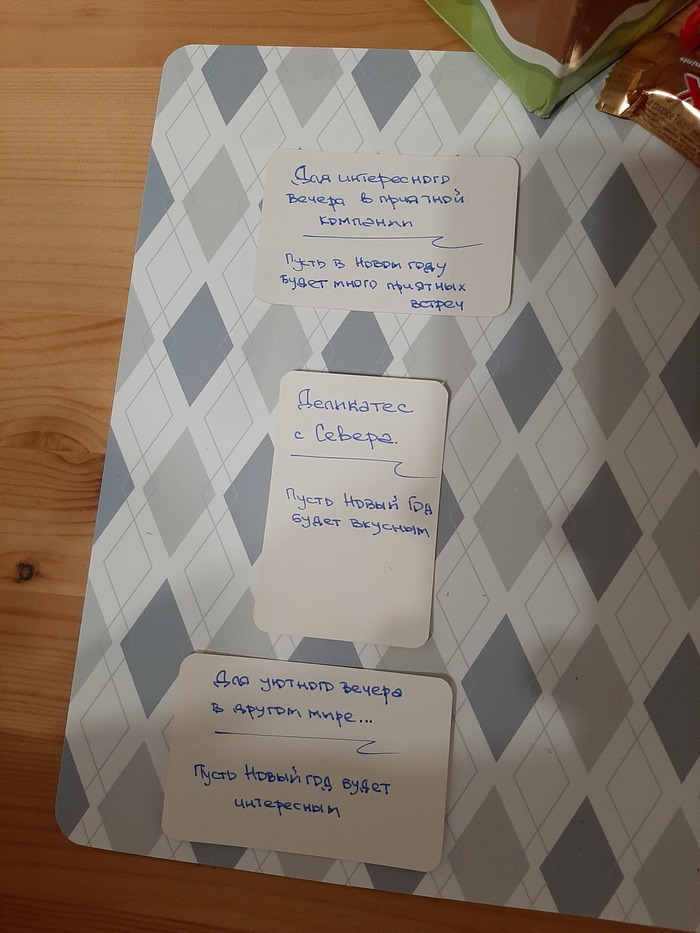 Для интересного
вечера в приятной
компании
Пусть в Новом году
будет много приятных
встреч
Деликатес
с Севера.
Пусть Новый Год
будет вкусным
Для уютного вечера
в другом мире...
Пусть Новый год будет
интересным